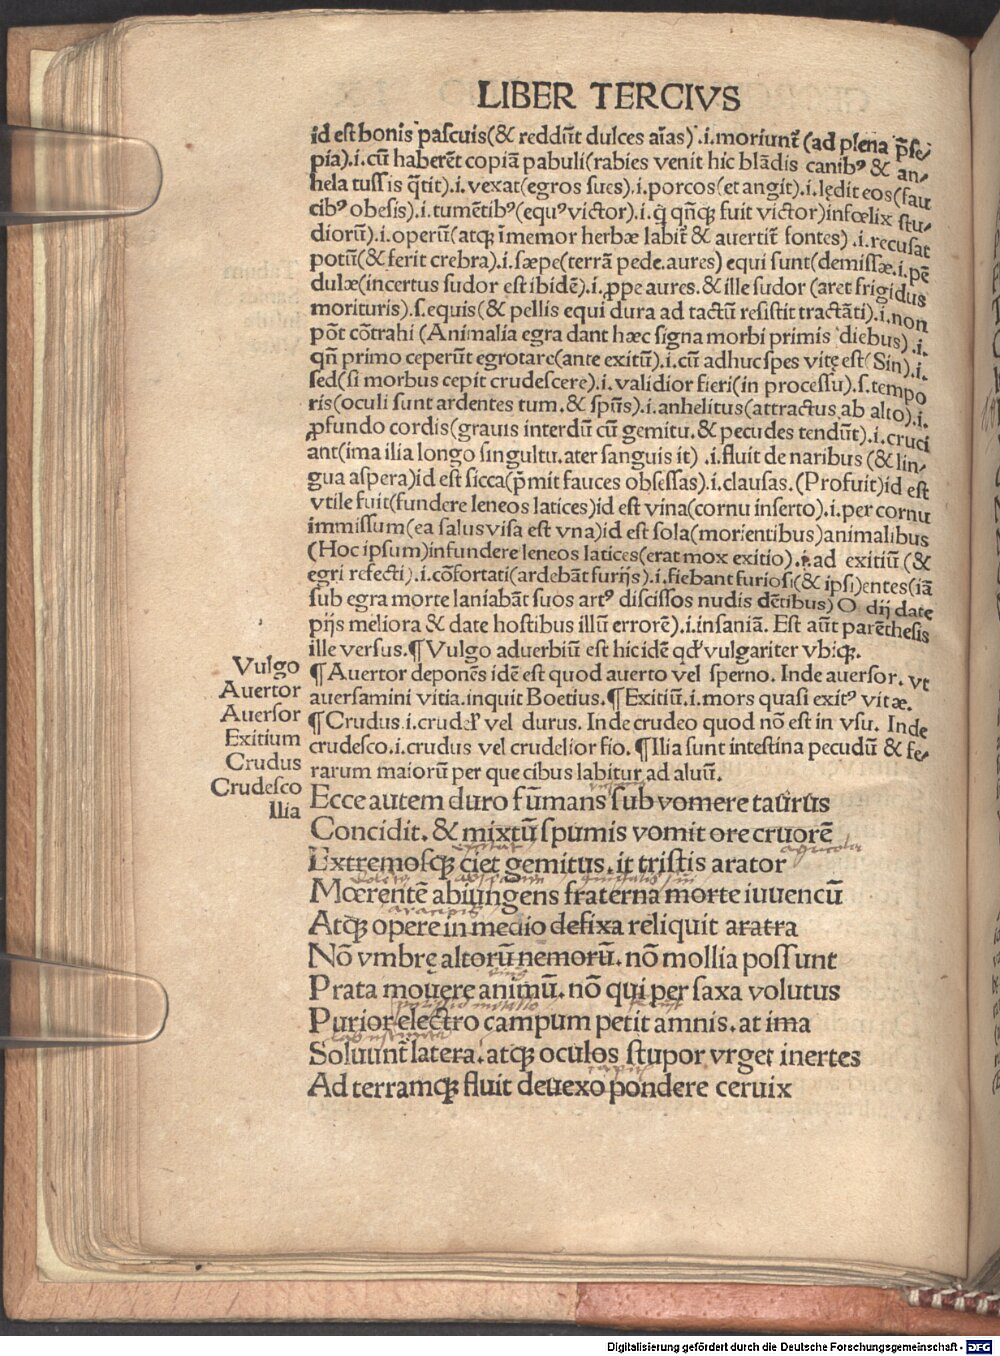 LIBER TERCIVS
id est bonis pascuis(& reddūt dulces aīas) .i.moriunt̄ (ad plena p̄se⸗
pia).i.cū haberēt copiā pabuli(rabies venit hic blādis canibꝰ & an⸗
hela tussis q̄tit).i.vexat(egros sues).i.porcos(et angit).i.lędit eos(fau
cibꝰ obesis).i.tumētibꝰ(equꝰ victor).i.q̄ qn̄qꝫ fuit victor)infœlix stu⸗
diorū).i.operū(atqꝫ īmemor herbæ labit̄ & auertit̄ fontes) .i.recusat
potū(& ferit crebra).i.sæpe(terrā pede.aures) equi sunt(demissæ.i.pē
dulæ(incertus sudor est ibidē).i.ꝓpe aures.& ille sudor (aret frigidus
morituris).s.equis(& pellis equi dura ad tactū resistit tractāti).i.non
pōt cōtrahi (Animalia egra dant hæc signa morbi primis diebus) .i.
qn̄ primo ceperūt egrotare(ante exitū).i.cū adhuc spes vitę est(Sin).i.
sed(si morbus cepit crudescere).i.validior fieri(in processu).s.tempo
ris(oculi sunt ardentes tum.& spūs).i.anhelitus(attractus ab alto).i.
ꝓfundo cordis(grauis interdū cū gemitu.& pecudes tendūt).i.cruci
ant(ima ilia longo singultu.ater sanguis it) .i.fluit de naribus (& lin⸗
gua aspera)id est sicca(p̄mit fauces obsessas).i.clausas.(Profuit)id est
vtile fuit(fundere leneos latices)id est vina(cornu inserto).i.per cornu
immissum(ea salus visa est vna)id est sola(morientibus)animalibus
(Hoc ipsum)infundere leneos latices(erat mox exitio).i.ad exitiū (&
egri refecti).i.cōfortati(ardebāt furijs).i.fiebant furiosi(& ipsi)entes(iā
sub egra morte laniabāt suos artꝰ discissos nudis dētibus) O dij date
pijs meliora & date hostibus illū errorē).i.insaniā. Est aūt parēthesis
ille versus.¶ Vulgo aduerbiū est hic idē qđ vulgariter vbiqꝫ.
Vulgo
¶ Auertor deponēs idē est quod auerto vel sperno. Inde auersor. vt
Auertor
auersamini vitia.inquit Boetius.¶ Exitiū.i.mors quasi exitꝰ vitæ.
Auersor
¶ Crudus.i.crudel̄ vel durus. Inde crudeo quod nō est in vsu. Inde
Exitium
crudesco.i.crudus vel crudelior fio. ¶Ilia sunt intestina pecudū & fe⸗
Crudus
rarum maiorū per que cibus labitur ad aluū.
Crudesco
Ilia
Ecce autem duro fūmans sub vomere taurus
Concidit. & mixtū spumis vomit ore cruorē
agricola
Extremosqꝫ ciet gemitus. it tristis arator
Mœrentē abiungens fraterna morte iuuencū
Atqꝫ opere in medio defixa reliquit aratra
Nō vmbrę altorū nemorū. nō mollia possunt
Prata mouere animū. nō qui per saxa volutus
Purior electro campum petit amnis. at ima
Soluunt̄ latera. atqꝫ oculos stupor vrget inertes
Ad terramqꝫ fluit deuexo pondere ceruix
Digitalisierung gefördert durch die Deutsche Forschungsgemeinschaft - DFG